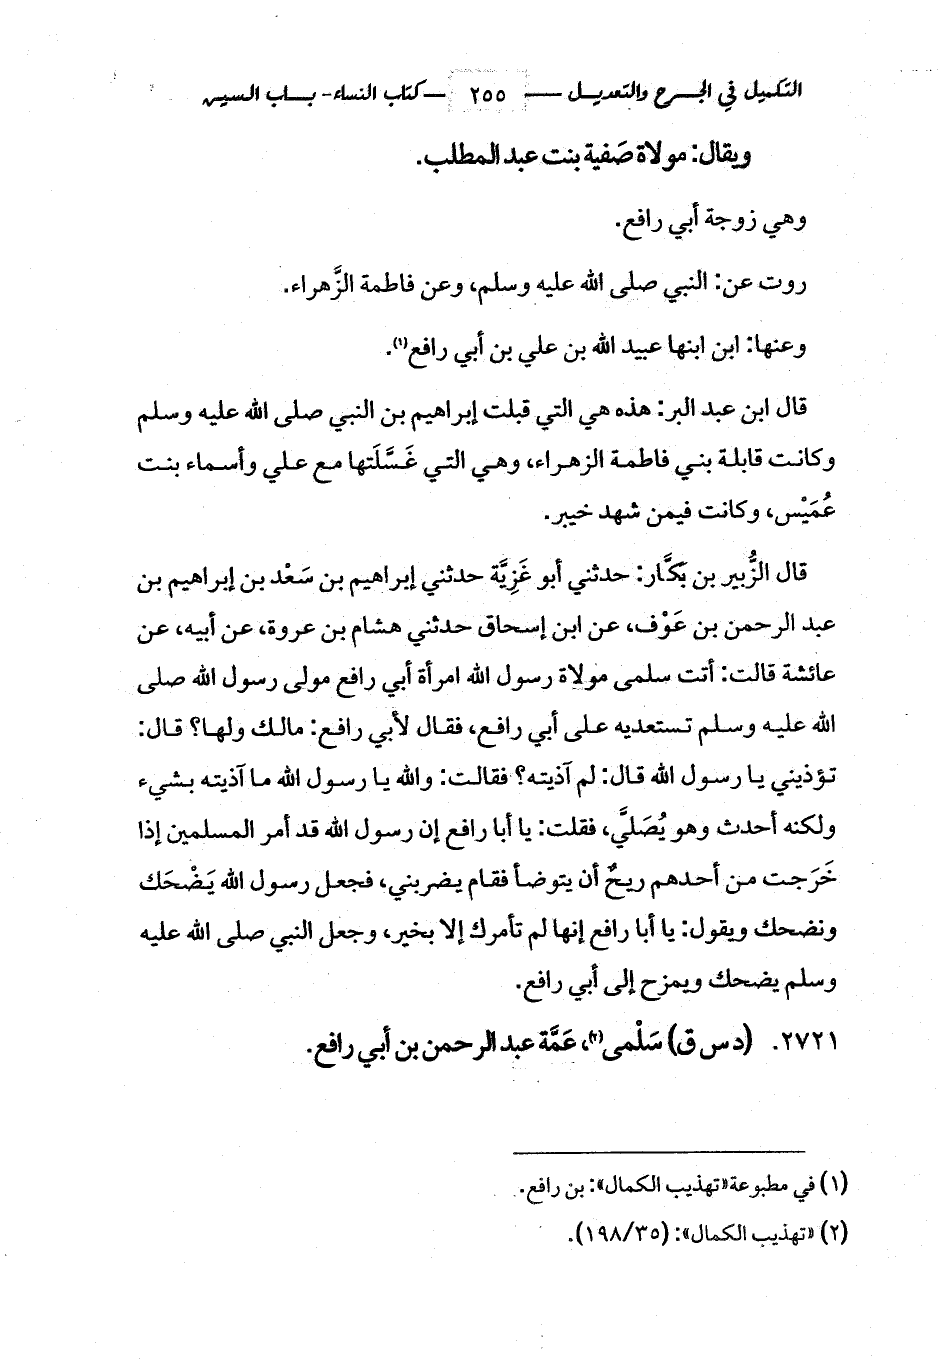 التكميل في الجـــرح والتعديـــل —— ٢٥٥ —كتاب النساء- بـــاب السيـن
ويقال: مولاة صَفية بنت عبد المطلب.
وهي زوجة أبي رافع.
روت عن: النبي صلى الله عليه وسلم، وعن فاطمة الزَّهراء.
وعنها: ابن ابنها عبيد الله بن علي بن أبي رافع(١).
قال ابن عبد البر: هذه هي التي قبلت إبراهيم بن النبي صلى الله عليه وسلم
وكانت قابلة بني فاطمة الزهراء، وهي التي غَسَّلَتها مع علي وأسماء بنت
عُمَيْس، وكانت فيمن شهد خيبر.
قال الزُّبير بن بَكَّار: حدثني أبو غَزِيَّة حدثني إبراهيم بن سَعْد بن إبراهيم بن
عبد الرحمن بن عَوْف، عن ابن إسحاق حدثني هشام بن عروة، عن أبيه، عن
عائشة قالت: أتت سلمى مولاة رسول الله امرأة أبي رافع مولى رسول الله صلى
الله عليه وسلم تستعديه على أبي رافع، فقال لأبي رافع: مالك ولها؟ قال:
تؤذيني يا رسول الله قال: لم آذيته؟ فقالت: والله يا رسول الله ما آذيته بشيء
ولكنه أحدث وهو يُصَلِّي، فقلت: يا أبا رافع إن رسول الله قد أمر المسلمين إذا
خَرَجت من أحدهم ريحٌ أن يتوضأ فقام يضربني، فجعل رسول الله يَضْحَك
ونضحك ويقول: يا أبا رافع إنها لم تأمرك إلا بخير، وجعل النبي صلى الله عليه
وسلم يضحك ويمزح إلى أبي رافع.
٢٧٢١. (د س ق) سَلْمى(٢)، عَمَّة عبد الرحمن بن أبي رافع.
(١) في مطبوعة «تهذيب الكمال»: بن رافع.
(٢) «تهذيب الكمال»: (١٩٨/٣٥).